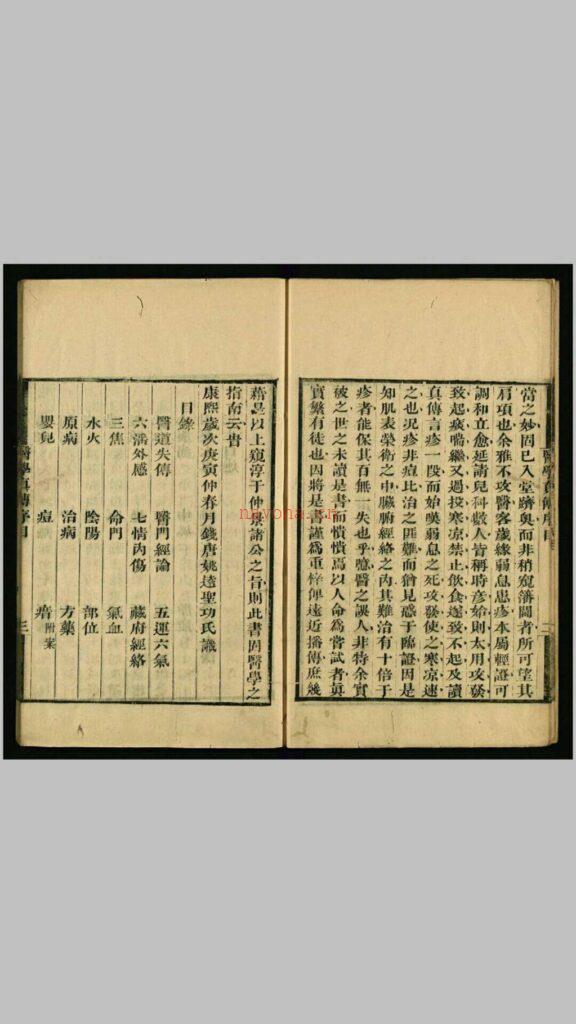 當之妙固已入堂躋奧而非稍窺籓闥者所可望其
肩項也余雅不攻醫客歲緣弱息患疹本屬輕證可
調和立愈延請兒科數人皆稱時彥始則大用攻發
致起痰喘繼又過投寒凉禁止飲食遂致不起及讀
真傳言疹一段而始嘆弱息之死攻發使之寒凉速
之也况疹非痘比治之匪難而猶見惑于臨證因是
知肌表榮衛之中臟腑經絡之內其難治有十倍于
疹者能保其百無一失也乎噫醫之誤人非特余實
被之世之未讀是書而憒憒焉以人命為嘗試者眞
實繁有徒也因將是書謹為重梓俾遠近播傳庶幾
醫學眞傳序目
二
藉是以上窺淳于仲景諸公之旨則此書固醫學之
指南云爾
康熙歲次庚寅仲春月錢唐姚遠聖功氏識
目錄
醫道失傳 醫門經論 五運六氣
六淫外感 七情內傷 臟府經絡
三焦 命門 氣血
水火 陰陽 部位
原病 治病 方藥
嬰兒 痘 瘄附案
醫學真傳序目
三
nayona.cn